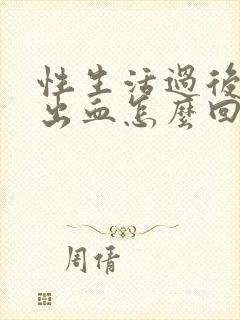 性生活過後
出血怎麼回
周倩